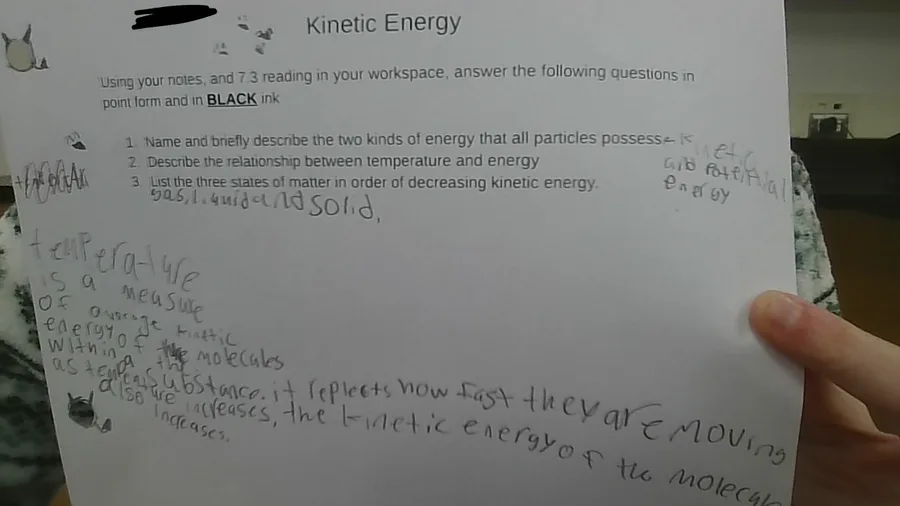 Kinetic Energy
Using your notes, and 7.3 reading in your workspace, answer the following questions in
point form and in BLACK ink
1. Name and briefly describe the two kinds of energy that all particles possess
kinetic
and potential
energy
2. Describe the relationship between temperature and energy
3. List the three states of matter in order of decreasing kinetic energy.
gas, liquid and solid.
temperature
is a measure
of average kinetic
energy of the molecules
within a substance. it replects how fast they are moving
as temperature increases, the kinetic energy of the molecul
also increases.